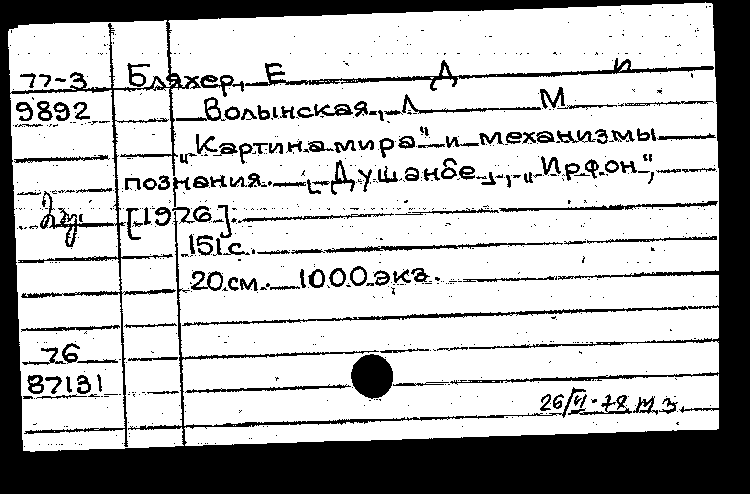 77-3 Бляхер, Е Д и
9892 Волынская, Л М
„Картина мира" и механизмы
познания. [Душанбе], „Ирфон",
[1976].
151 с.
20 см. 1000 экз.
76
87131
26/VI-78 м з.